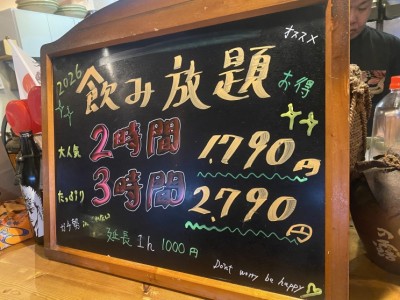 オススメ
2026
飲み放題
お得
大人気 2時間 1,790円
たっぷり 3時間 2,790円
延長 1h 1000円
Don't worry be happy